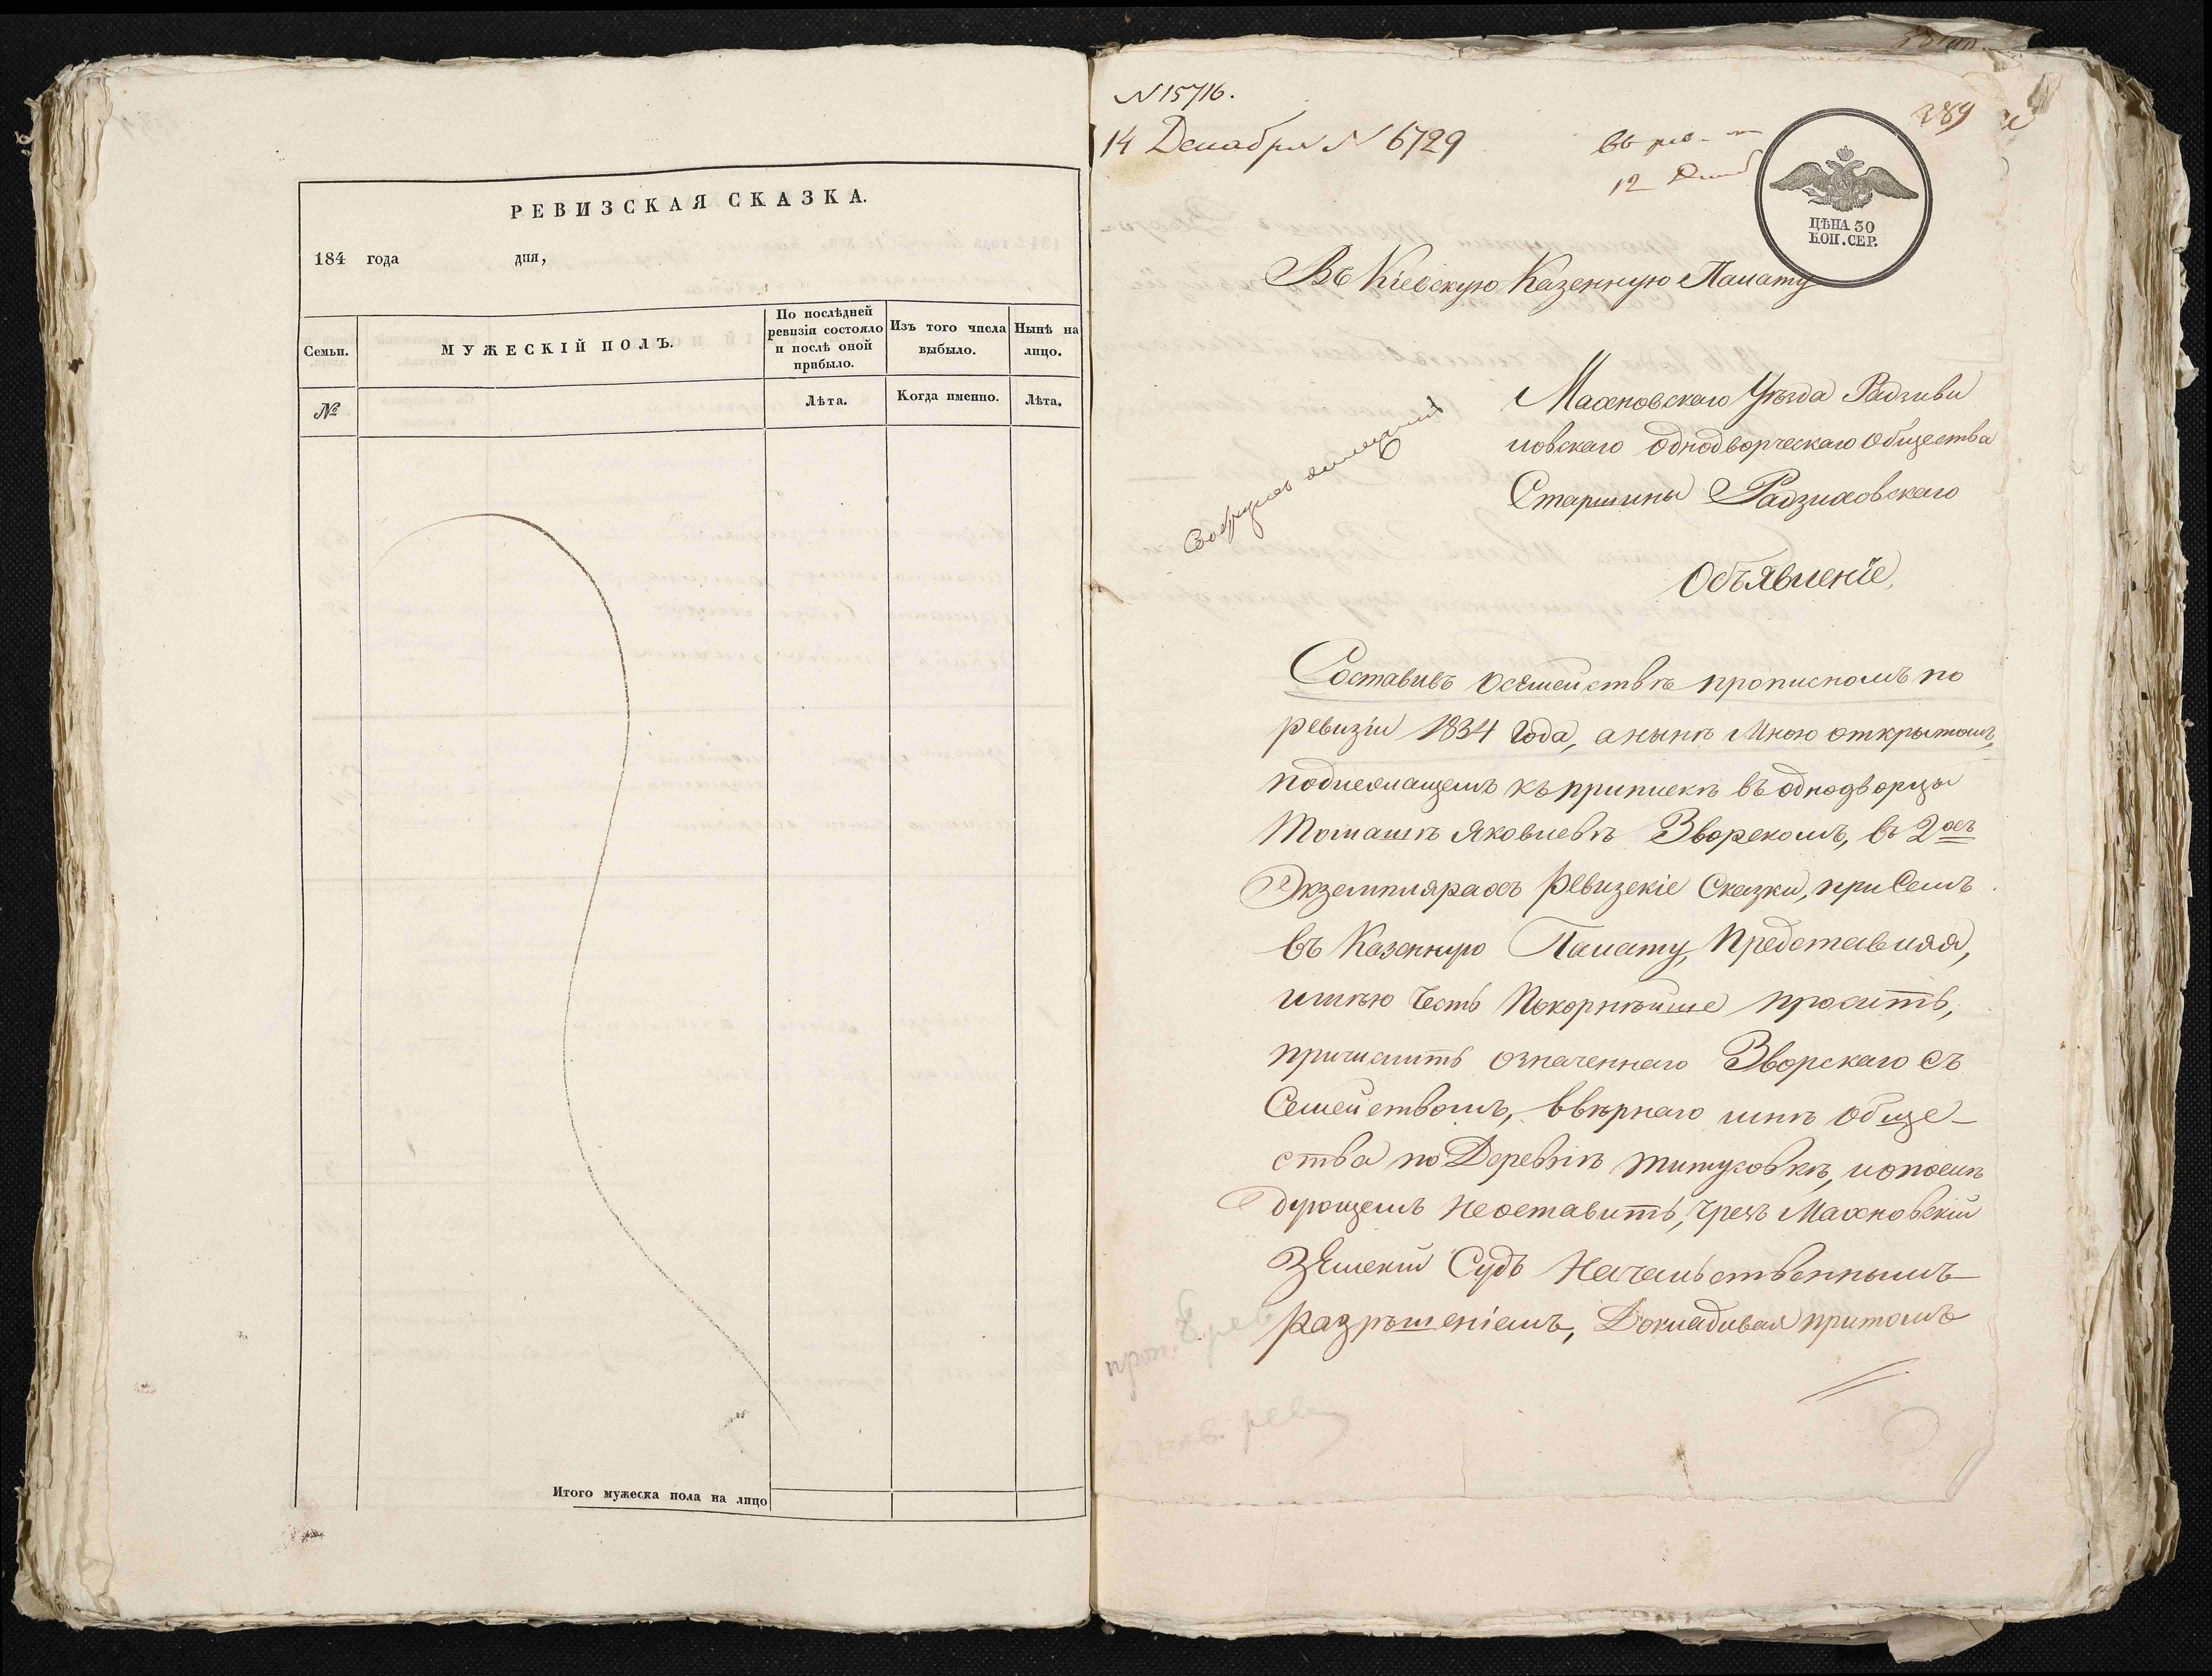 РЕВИЗСКАЯ СКАЗКА.
184 года дня,
Семьи.
МУЖЕСКІЙ ПОЛЪ.
По послѣдней
ревизіи состояло
и послѣ оной
прибыло.
Изъ того числа
выбыло.
Нынѣ на
лицо.
№
Лѣта.
Когда именно.
Лѣта.
Итого мужеска пола на лицо
N 15716.
14 Декабря N 6729
12
289
ЦѢНА 30
КОП. СЕР.
Въ Кіевскую Казенную Палату
Махновскаго Уѣзда Радзиви
ловскаго однодворческаго общества
Старшины Радзиховскаго
Объявленіе,
Составивъ осемействѣ прописномъ по
ревизіи 1834 года, анынѣ Мною открытомъ,
подлежащемъ къ припискѣ въ однодворцы
Томашѣ Яковлевѣ Зворскомъ, въ 2хъ
Экземплярахъ Ревизскіе Сказки, при Семъ
въ Казенную Палату, представляя,
имѣю Честь Покорнѣйше просить,
причислить означеннаго Зворскаго съ
Семействомъ, ввѣрнаго мнѣ обще-
ства по Деревнѣ Титусовкѣ, ипослѣ
дующемъ Неоставить, Чрезъ Махновскій
Земскій Судъ Начальственнымъ
разрѣшеніемъ, Докладывая притомъ